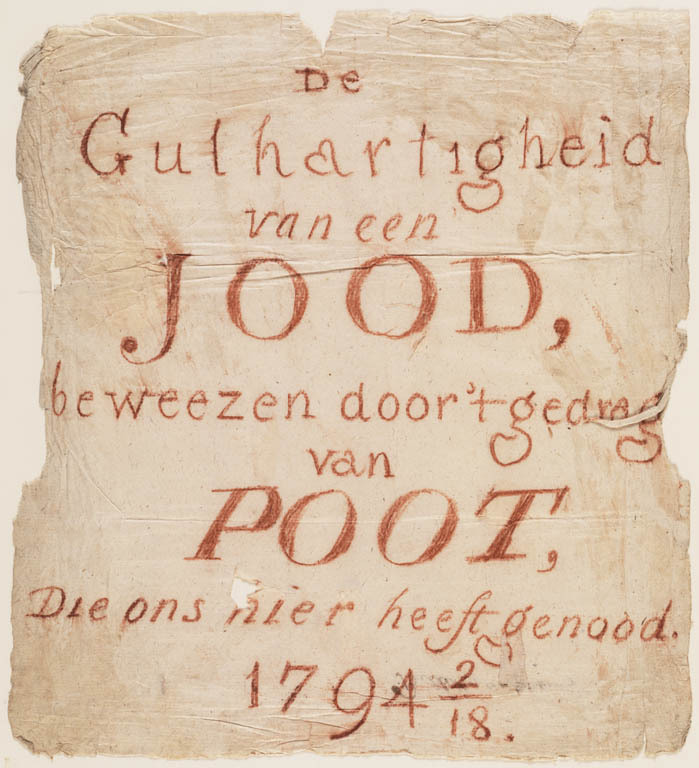 De
Gulhartigheid
van een
JOOD,
beweezen door 't gedrag
van
POOT,
Die ons hier heeft genood.
1794 2/18.